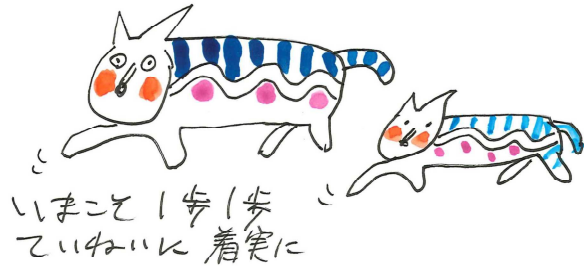 いまこそ 1歩1歩
ていねいに 着実に